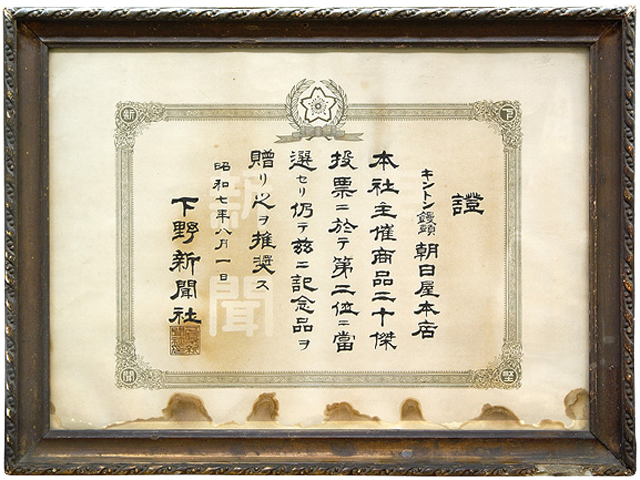 證
キントン饅頭 朝日屋本店
本社主催商品二十傑
投票ニ於テ第二位ニ當
選セリ仍テ茲ニ記念品ヲ
贈リ之ヲ推奨ス
昭和七年八月一日
下野新聞社
下
野
新
聞
新聞